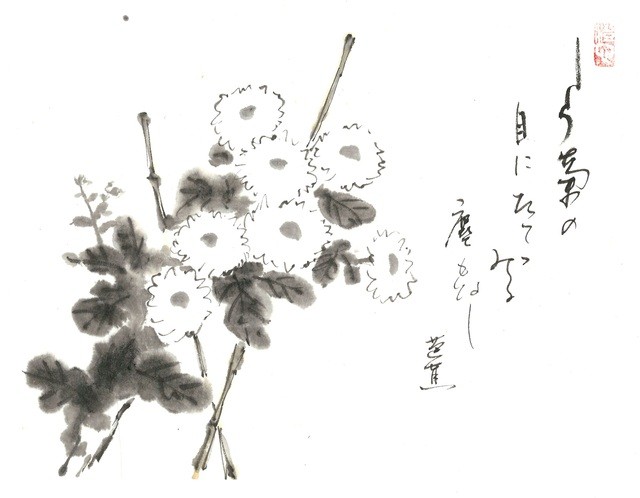 しら菊の
目にたてゝ
見る
塵もなし
芭蕉